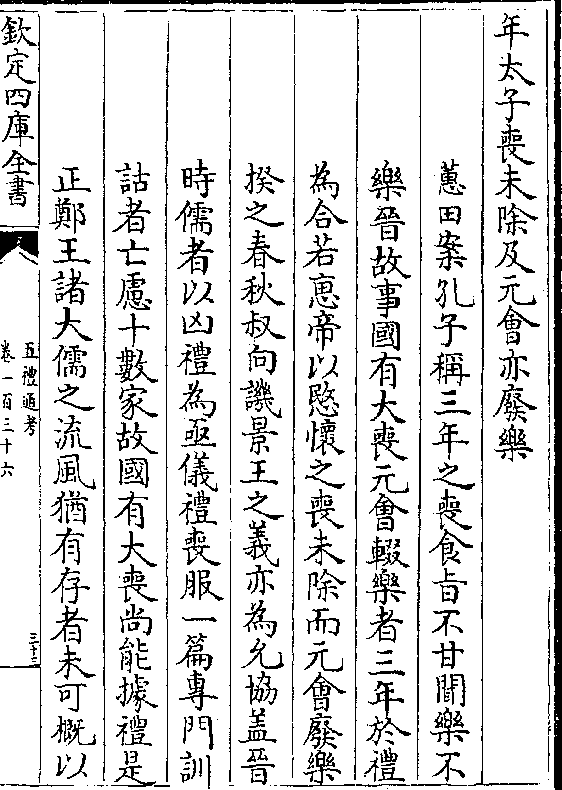 年太子喪未除及元會亦廢樂
蕙田案孔子稱三年之喪食旨不甘聞樂不
樂晉故事國有大喪元會輟樂者三年於禮
為合若惠帝以愍懷之喪未除而元會廢樂
揆之春秋叔向譏景王之義亦為允協蓋晉
時儒者以凶禮為亟儀禮喪服一篇專門訓
詁者亡慮十數家故國有大喪尚能據禮是
正鄭王諸大儒之流風猶有存者未可概以
欽定四庫全書
五禮通考
卷一百三十六
三十三